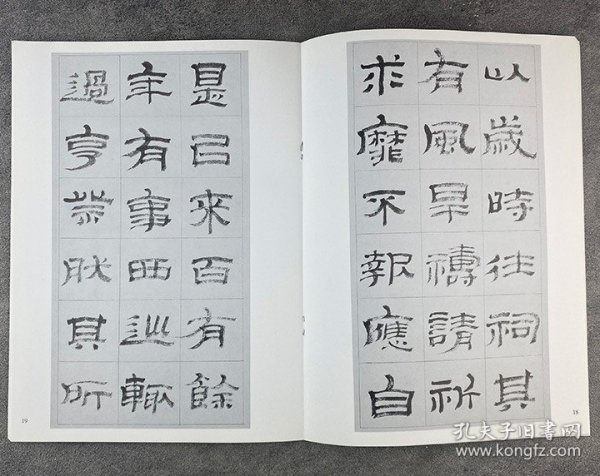 以歲時往祠其
有風旱禱請祈
求靡不報應自
18
是已来百有餘
年有事西巡輒
過亨祭然其所
19
孔夫子旧书网
www.kongfz.com